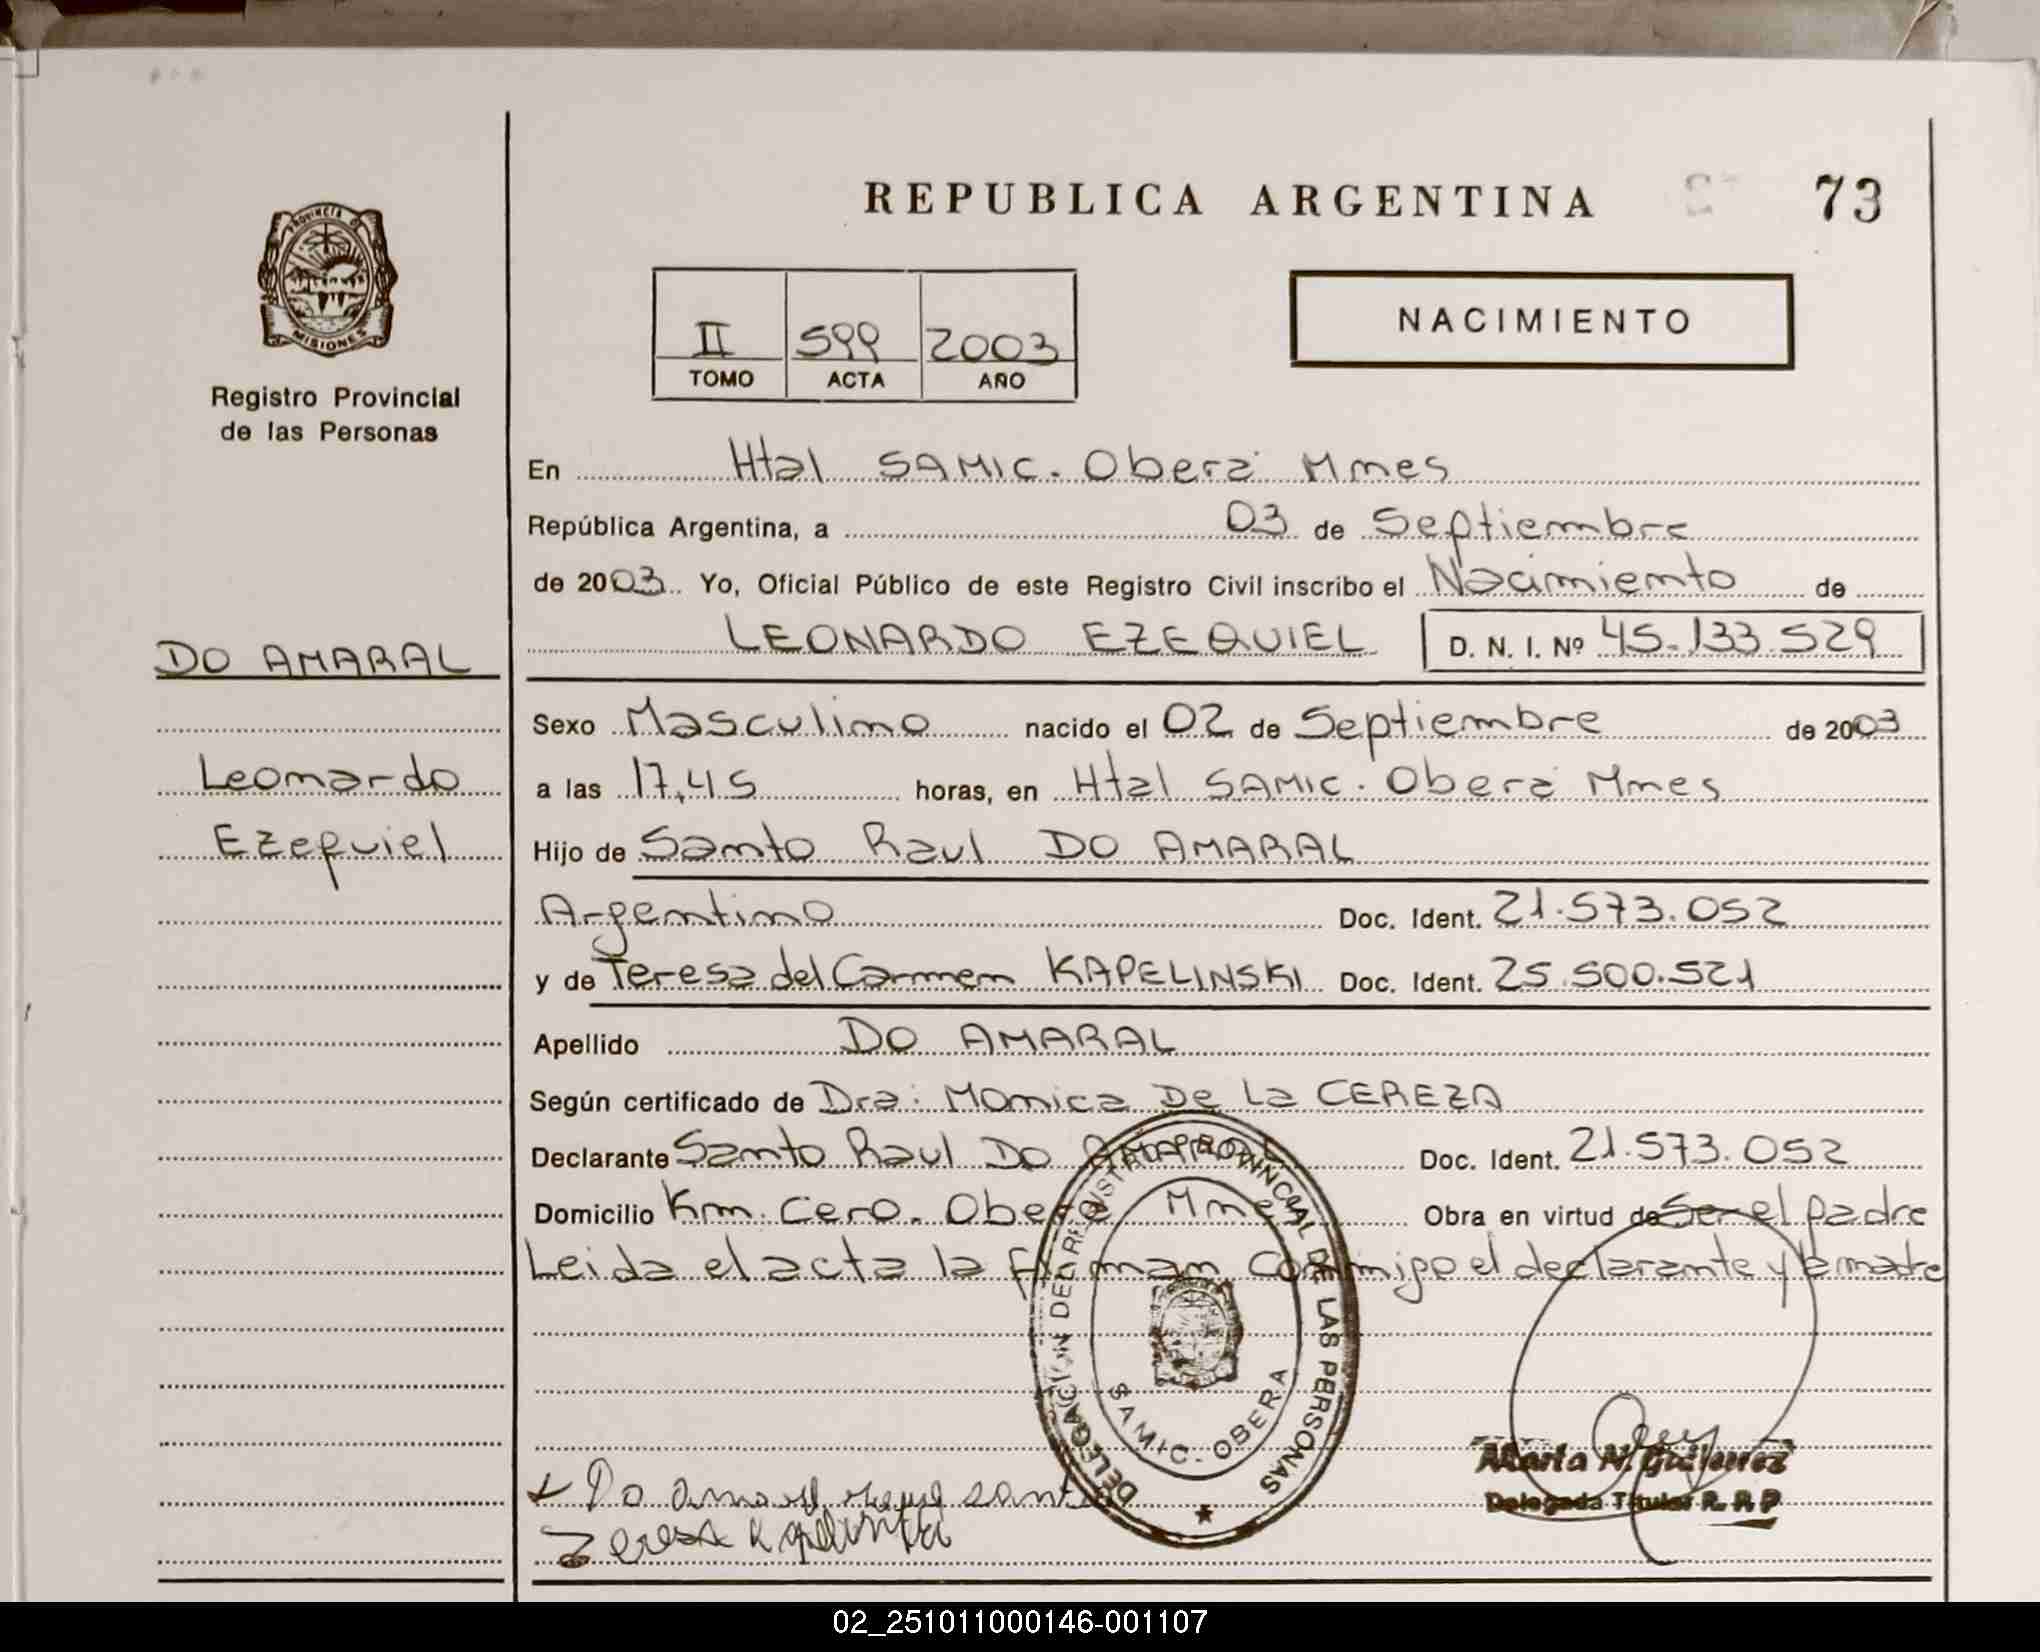 REPUBLICA ARGENTINA
73
PROVINCIA DE
MISIONES
Registro Provincial
de las Personas
II 599 2003
TOMO ACTA AÑO
NACIMIENTO
En Htal SAMIC. Oberá Mnes
República Argentina, a 03 de Septiembre
de 2003 Yo, Oficial Público de este Registro Civil inscribo el Nacimiento de
LEONARDO EZEQUIEL D. N. I. Nº 45.133.529
DO AMARAL
Leonardo
Ezequiel
Sexo Masculino nacido el 02 de Septiembre de 2003
a las 17,45 horas, en Htal SAMIC. Oberá Mnes
Hijo de Santo Raul DO AMARAL
Argentino Doc. Ident. 21.573.052
y de Teresa del Carmen KAPELINSKI Doc. Ident. 25.500.521
Apellido DO AMARAL
Según certificado de Dra: Monica De La CEREZA
Declarante Santo Raul DO AMARAL Doc. Ident. 21.573.052
Domicilio Km. Cero. Oberá Mnes Obra en virtud de Ser el padre
Leida el acta la firman conmigo el declarante y la madre
DELEGACIÓN DEL REGISTRO PROVINCIAL DE LAS PERSONAS
SAMIC. OBERA
Do amaral raul santo
Teresa Kapelinski
Marta N. Gutierrez
Delegada Titular R. P. P
02_251011000146-001107